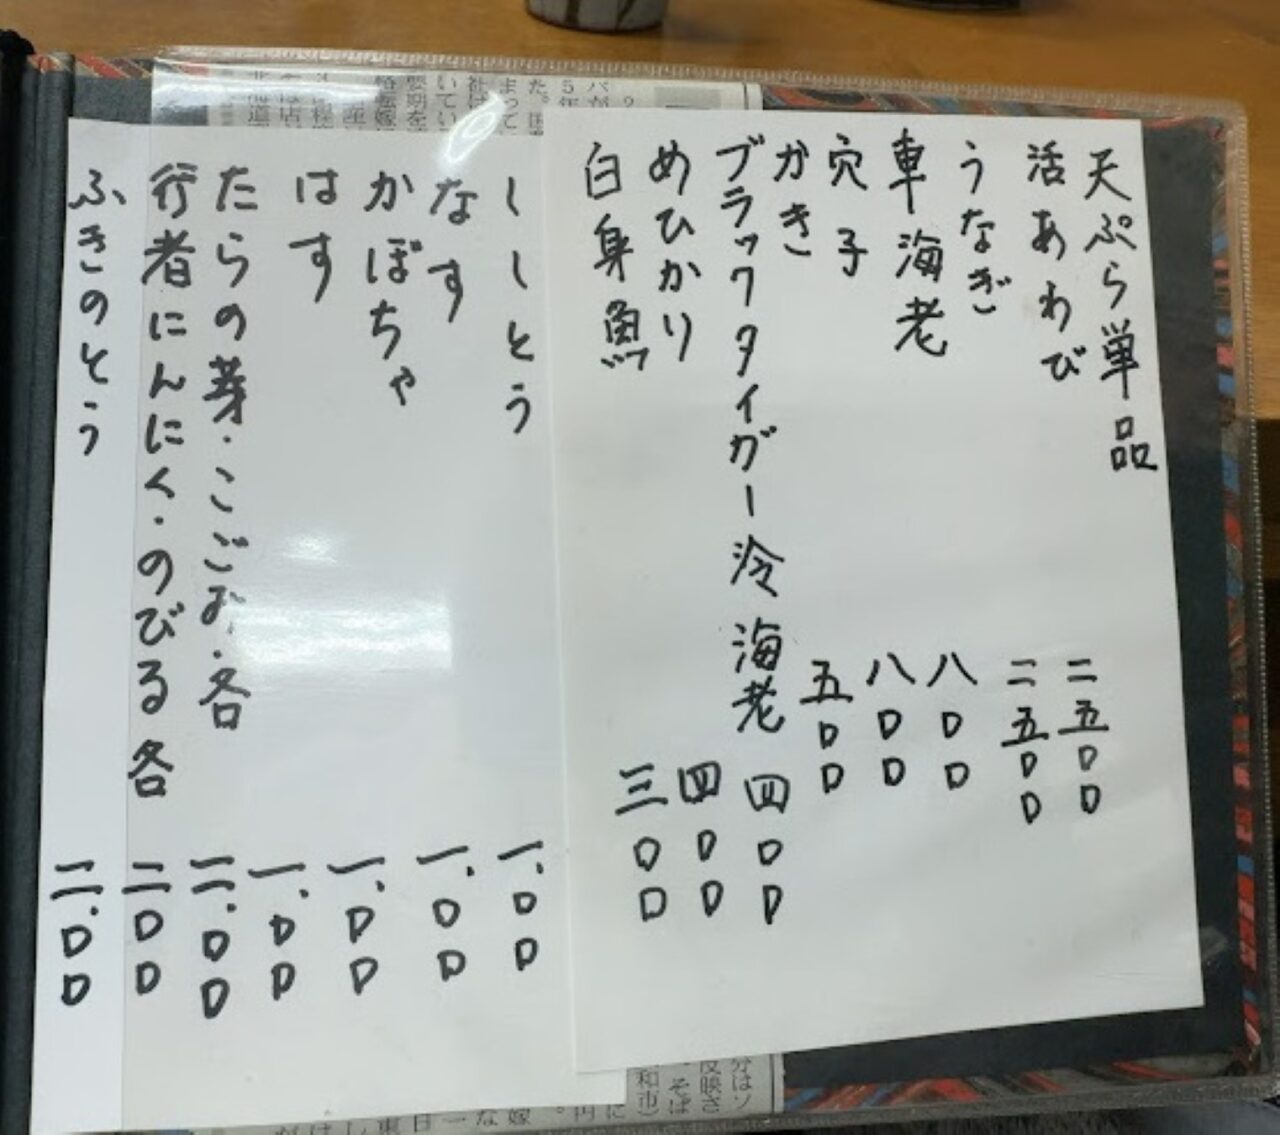 天ぷら単品
活あわび 二五〇〇
うなぎ 二五〇〇
車海老 八〇〇
穴子 八〇〇
かき 五〇〇
ブラックタイガー冷海老 四〇〇
めひかり 四〇〇
白身魚 三〇〇
ししとう 一、〇〇
なす 一、〇〇
かぼちゃ 一、〇〇
はす 一、〇〇
たらの芽・こごみ・各 二、〇〇
行者にんにく・のびる各 二〇〇
ふきのとう 二、〇〇